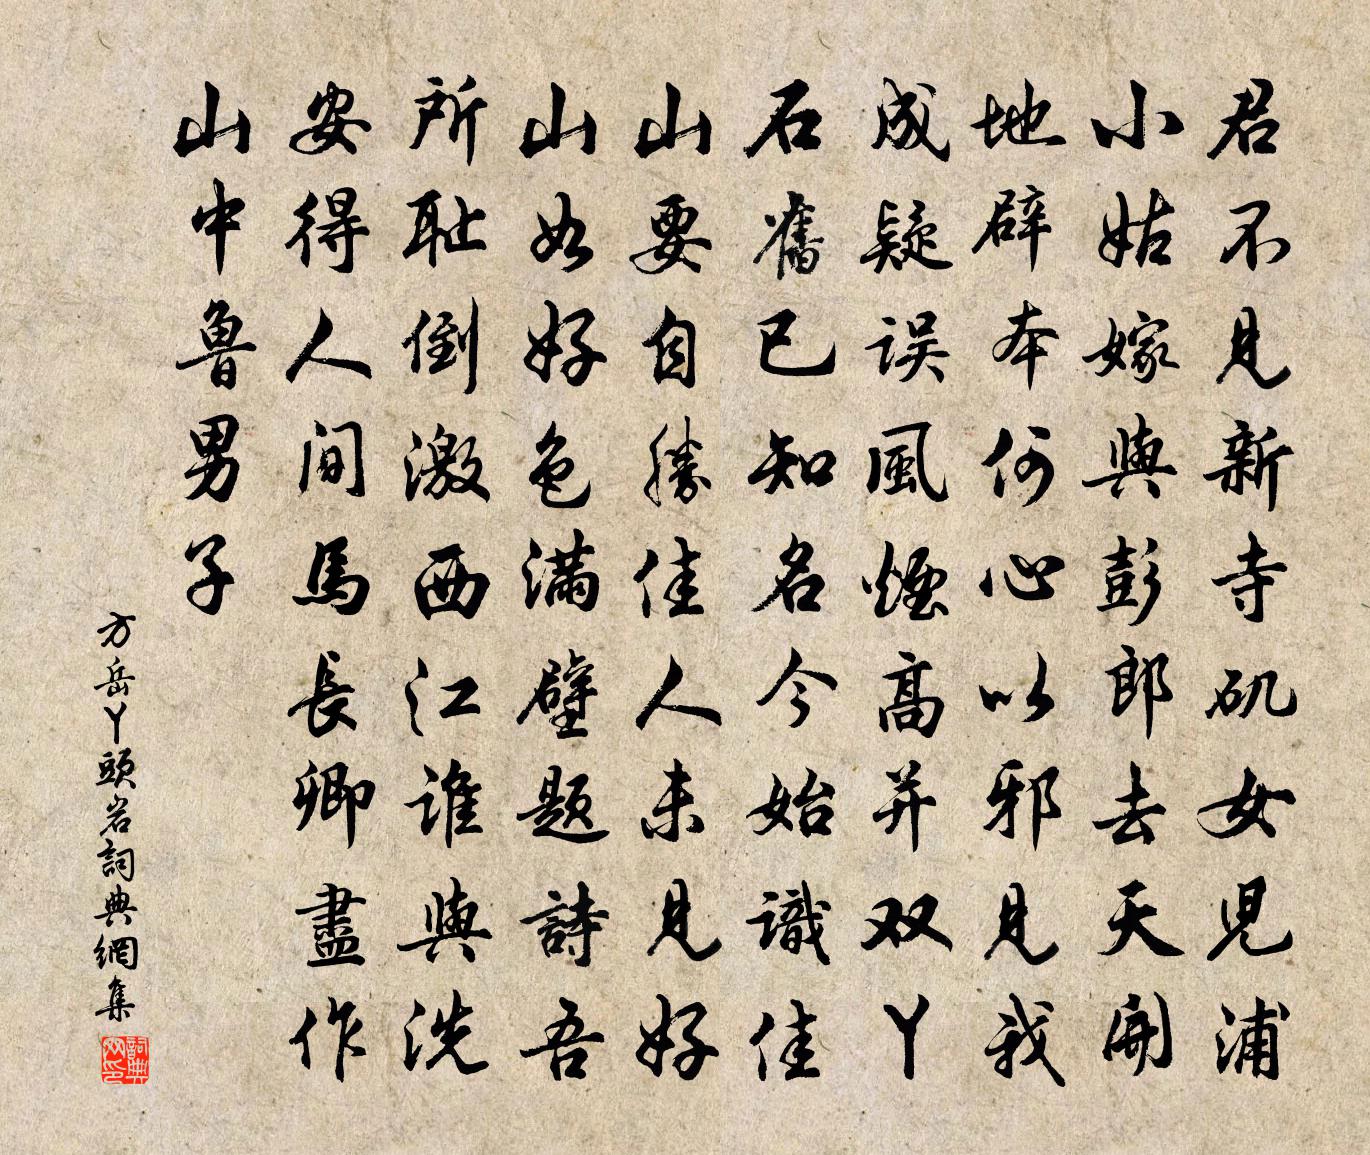 君不見新寺矶女児浦
小姑嫁與彭郎去天開
地辟本何心以邪見我
成疑误風煙高并双丫
石舊已知名今始識佳
山要自勝佳人未見好
山如好色滿壁题詩吾
所耻倒激西江谁與洗
安得人间馬長卿盡作
山中魯男子
方岳丫頭岩詞典網集
詞典网印